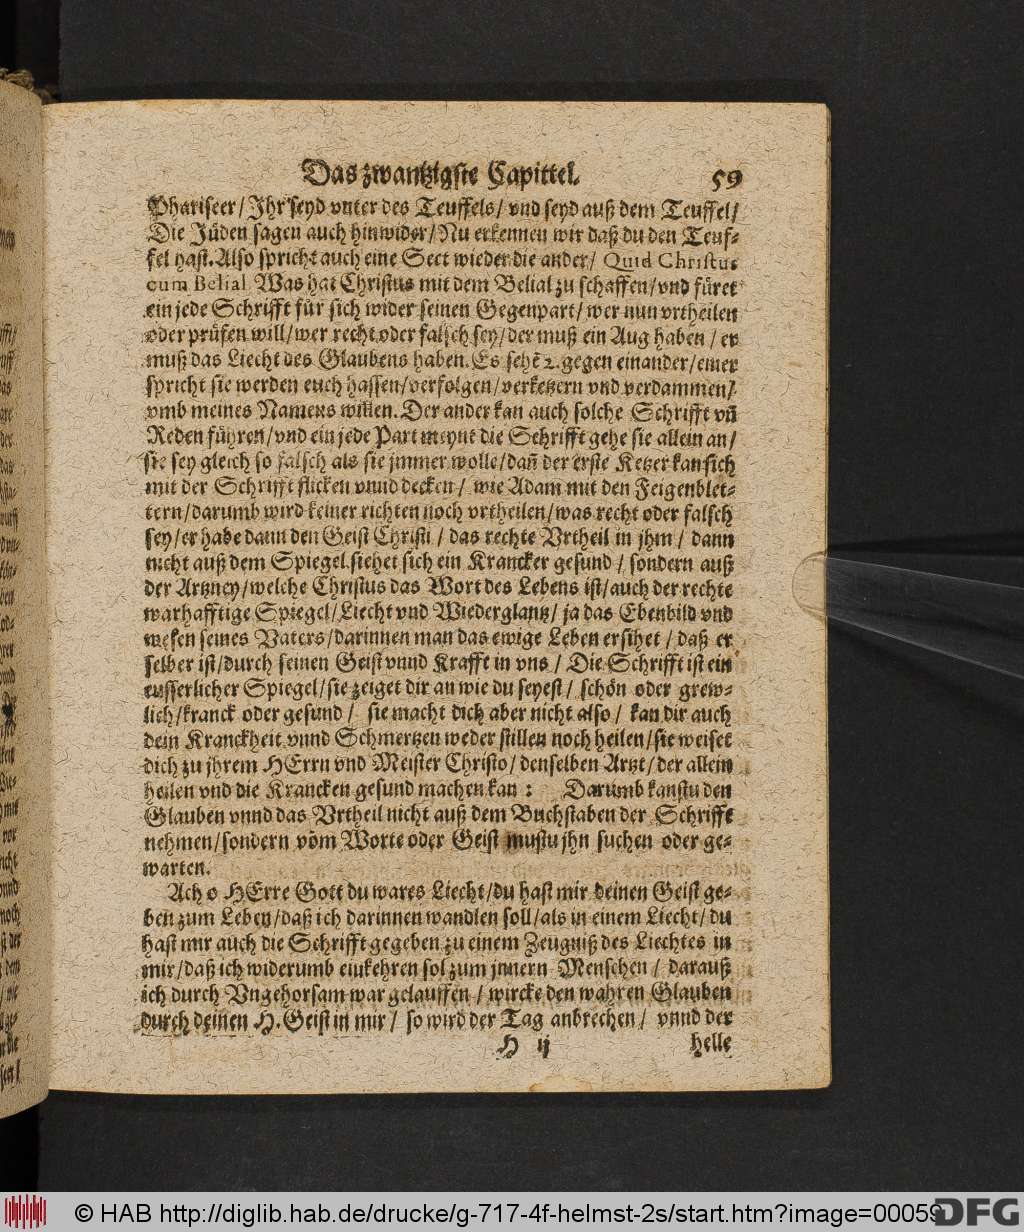 Das zwantzigste Capittel. 59
Phariseer / Ihr seyd vnter des Teuffels / vnd seyd auß dem Teuffel /
Die Jüden sagen auch hinwider / Nu erkennen wir daß du den Teuf-
fel hast. Also spricht auch eine Sect wieder die ander / Quid Christus
cum Belial Was hat Christus mit dem Belial zu schaffen / vnd füret
ein jede Schrifft für sich wider seinen Gegenpart / wer nun vrtheilen
oder prüfen will / wer recht oder falsch sey / der muß ein Aug haben / er
muß das Liecht des Glaubens haben. Es sehē 2. gegen einander / einer
spricht sie werden euch hassen / verfolgen / verketzern vnd verdammen /
vmb meines Namens willen. Der ander kan auch solche Schrifft vñ
Reden führen / vnd ein jede Part meynt die Schrifft gehe sie allein an /
sie sey gleich so falsch als sie jmmer wolle / dañ der erste Ketzer kan sich
mit der Schrifft flicken vnnd decken / wie Adam mit den Feigenblet-
tern / darumb wird keiner richten noch vrtheilen / was recht oder falsch
sey / er habe dann den Geist Christi / das rechte Vrtheil in jhm / dann
nicht auß dem Spiegel siehet sich ein Krancker gesund / sondern auß
der Artzney / welche Christus das Wort des Lebens ist / auch der rechte
warhafftige Spiegel / Liecht vnd Wiederglantz / ja das Ebenbild vnd
wesen seines Vaters / darinnen man das ewige Leben ersihet / daß er
selber ist / durch seinen Geist vnnd Krafft in vns / Die Schrifft ist ein
eusserlicher Spiegel / sie zeiget dir an wie du seyest / schön oder grew-
lich / kranck oder gesund / sie macht dich aber nicht also / kan dir auch
dein Kranckheit vnnd Schmertzen weder stillen noch heilen / sie weiset
dich zu jhrem HErrn vnd Meister Christo / denselben Artzt / der allein
heilen vnd die Krancken gesund machen kan : Darumb kanstu den
Glauben vnnd das Vrtheil nicht auß dem Buchstaben der Schrifft
nehmen / sondern vom Worte oder Geist mustu jhn suchen oder ge-
warten.
Ach o HErre Gott du wares Liecht / du hast mir deinen Geist ge-
ben zum Leben / daß ich darinnen wandlen soll / als in einem Liecht / du
hast mir auch die Schrifft gegeben zu einem Zeugniß des Liechtes in
mir / daß ich widerumb einkehren sol zum jnnern Menschen / darauß
ich durch Vngehorsam war gelauffen / wircke den wahren Glauben
durch deinen H. Geist in mir / so wird der Tag anbrechen / vnnd der
H ij helle
© HAB http://diglib.hab.de/drucke/g-717-4f-helmst-2s/start.htm?image=00059
DFG